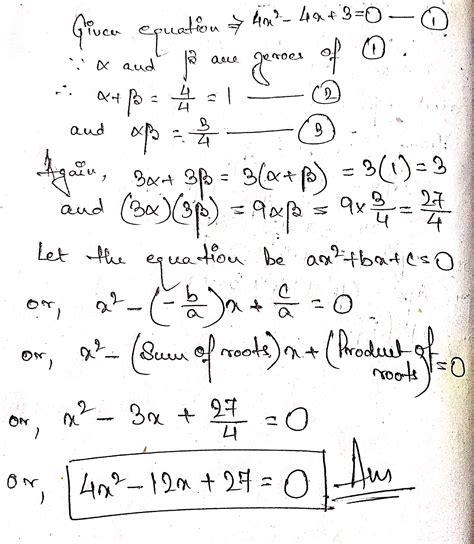 Given equation ⇒ 4x² - 4x + 3 = 0 — ①
∵ α and β are zeroes of ①.
∴ α + β = 4/4 = 1 — ②
and αβ = 3/4 — ③
Again, 3α + 3β = 3(α + β) = 3(1) = 3
and (3α)(3β) = 9αβ = 9 × 3/4 = 27/4
Let the equation be ax² + bx + c = 0
or, x² - (-b/a)x + c/a = 0
or, x² - (Sum of roots)x + (Product of roots) = 0
or, x² - 3x + 27/4 = 0
or, 4x² - 12x + 27 = 0 Ans